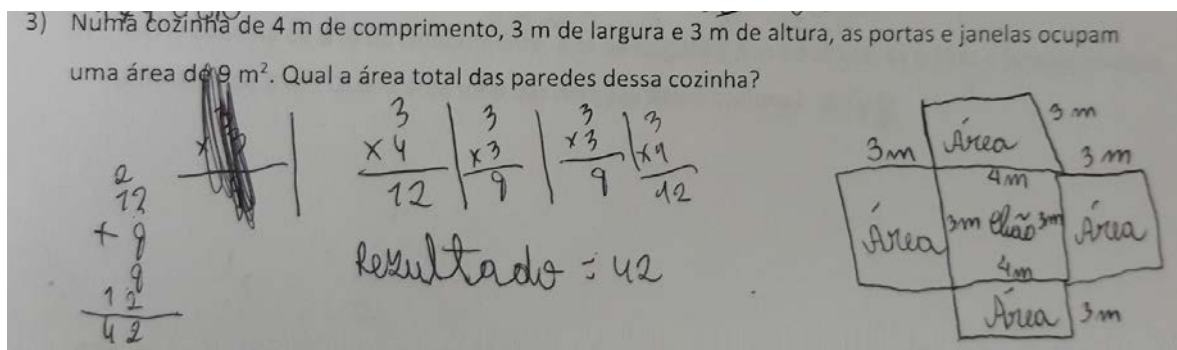 3) Numa cozinha de 4 m de comprimento, 3 m de largura e 3 m de altura, as portas e janelas ocupam
uma área de 9 m². Qual a área total das paredes dessa cozinha?
3
x 4
12
3
x3
9
3
x3
9
3
x4
12
2
12
+ 9
9
12
42
Rezultado = 42
3 m
Área
3m
3 m
4m
Área
3m chão 3m
Área
4m
Área
3m